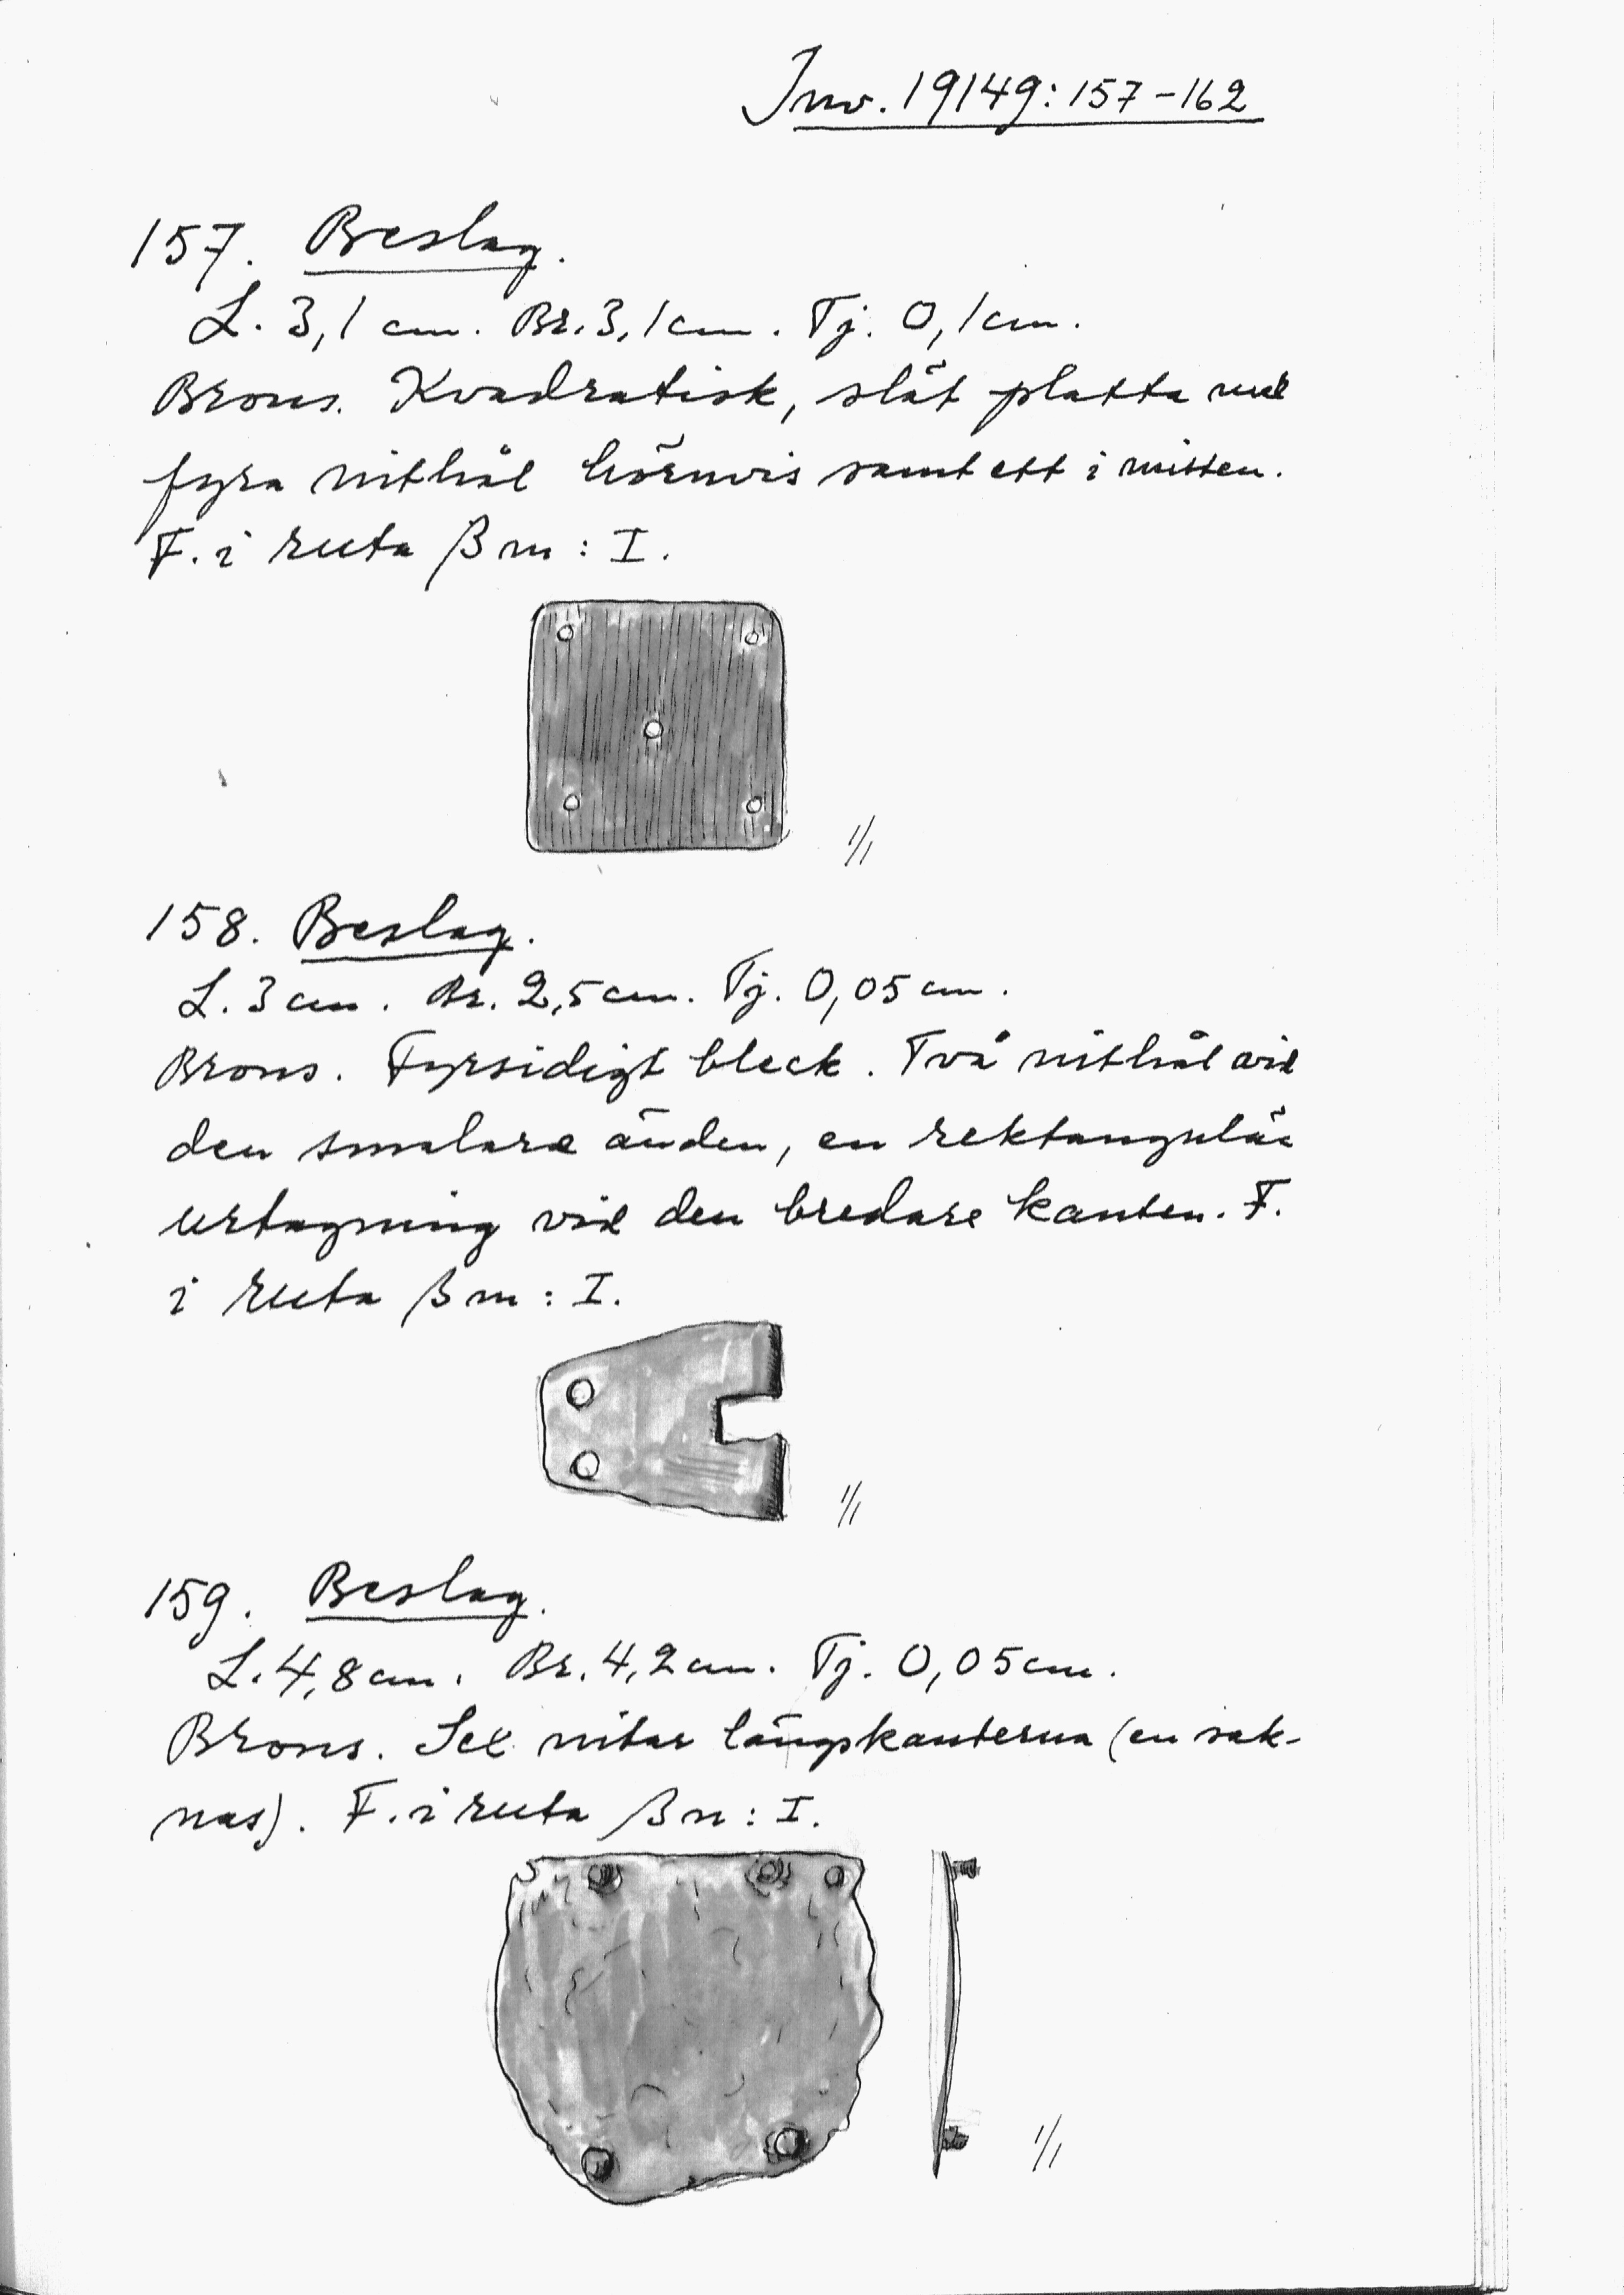 Inv. 19149:157-162
157. Beslag.
L. 3,1 cm. Br. 3,1 cm. Tj. 0,1 cm.
Brons. Kvadratisk, slät platta med
fyra nithål hörnvis samt ett i mitten.
F. i ruta βm: I.
1/1
158. Beslag.
L. 3 cm. Br. 2,5 cm. Tj. 0,05 cm.
Brons. Fyrsidigt bleck. Två nithål vid
den smalare änden, en rektangulär
urtagning vid den bredare kanten. F.
i ruta βm: I.
1/1
159. Beslag.
L. 4,8 cm. Br. 4,2 cm. Tj. 0,05 cm.
Brons. Sex nitar längs kanterna (en sak-
nas). F. i ruta βn: I.
1/1